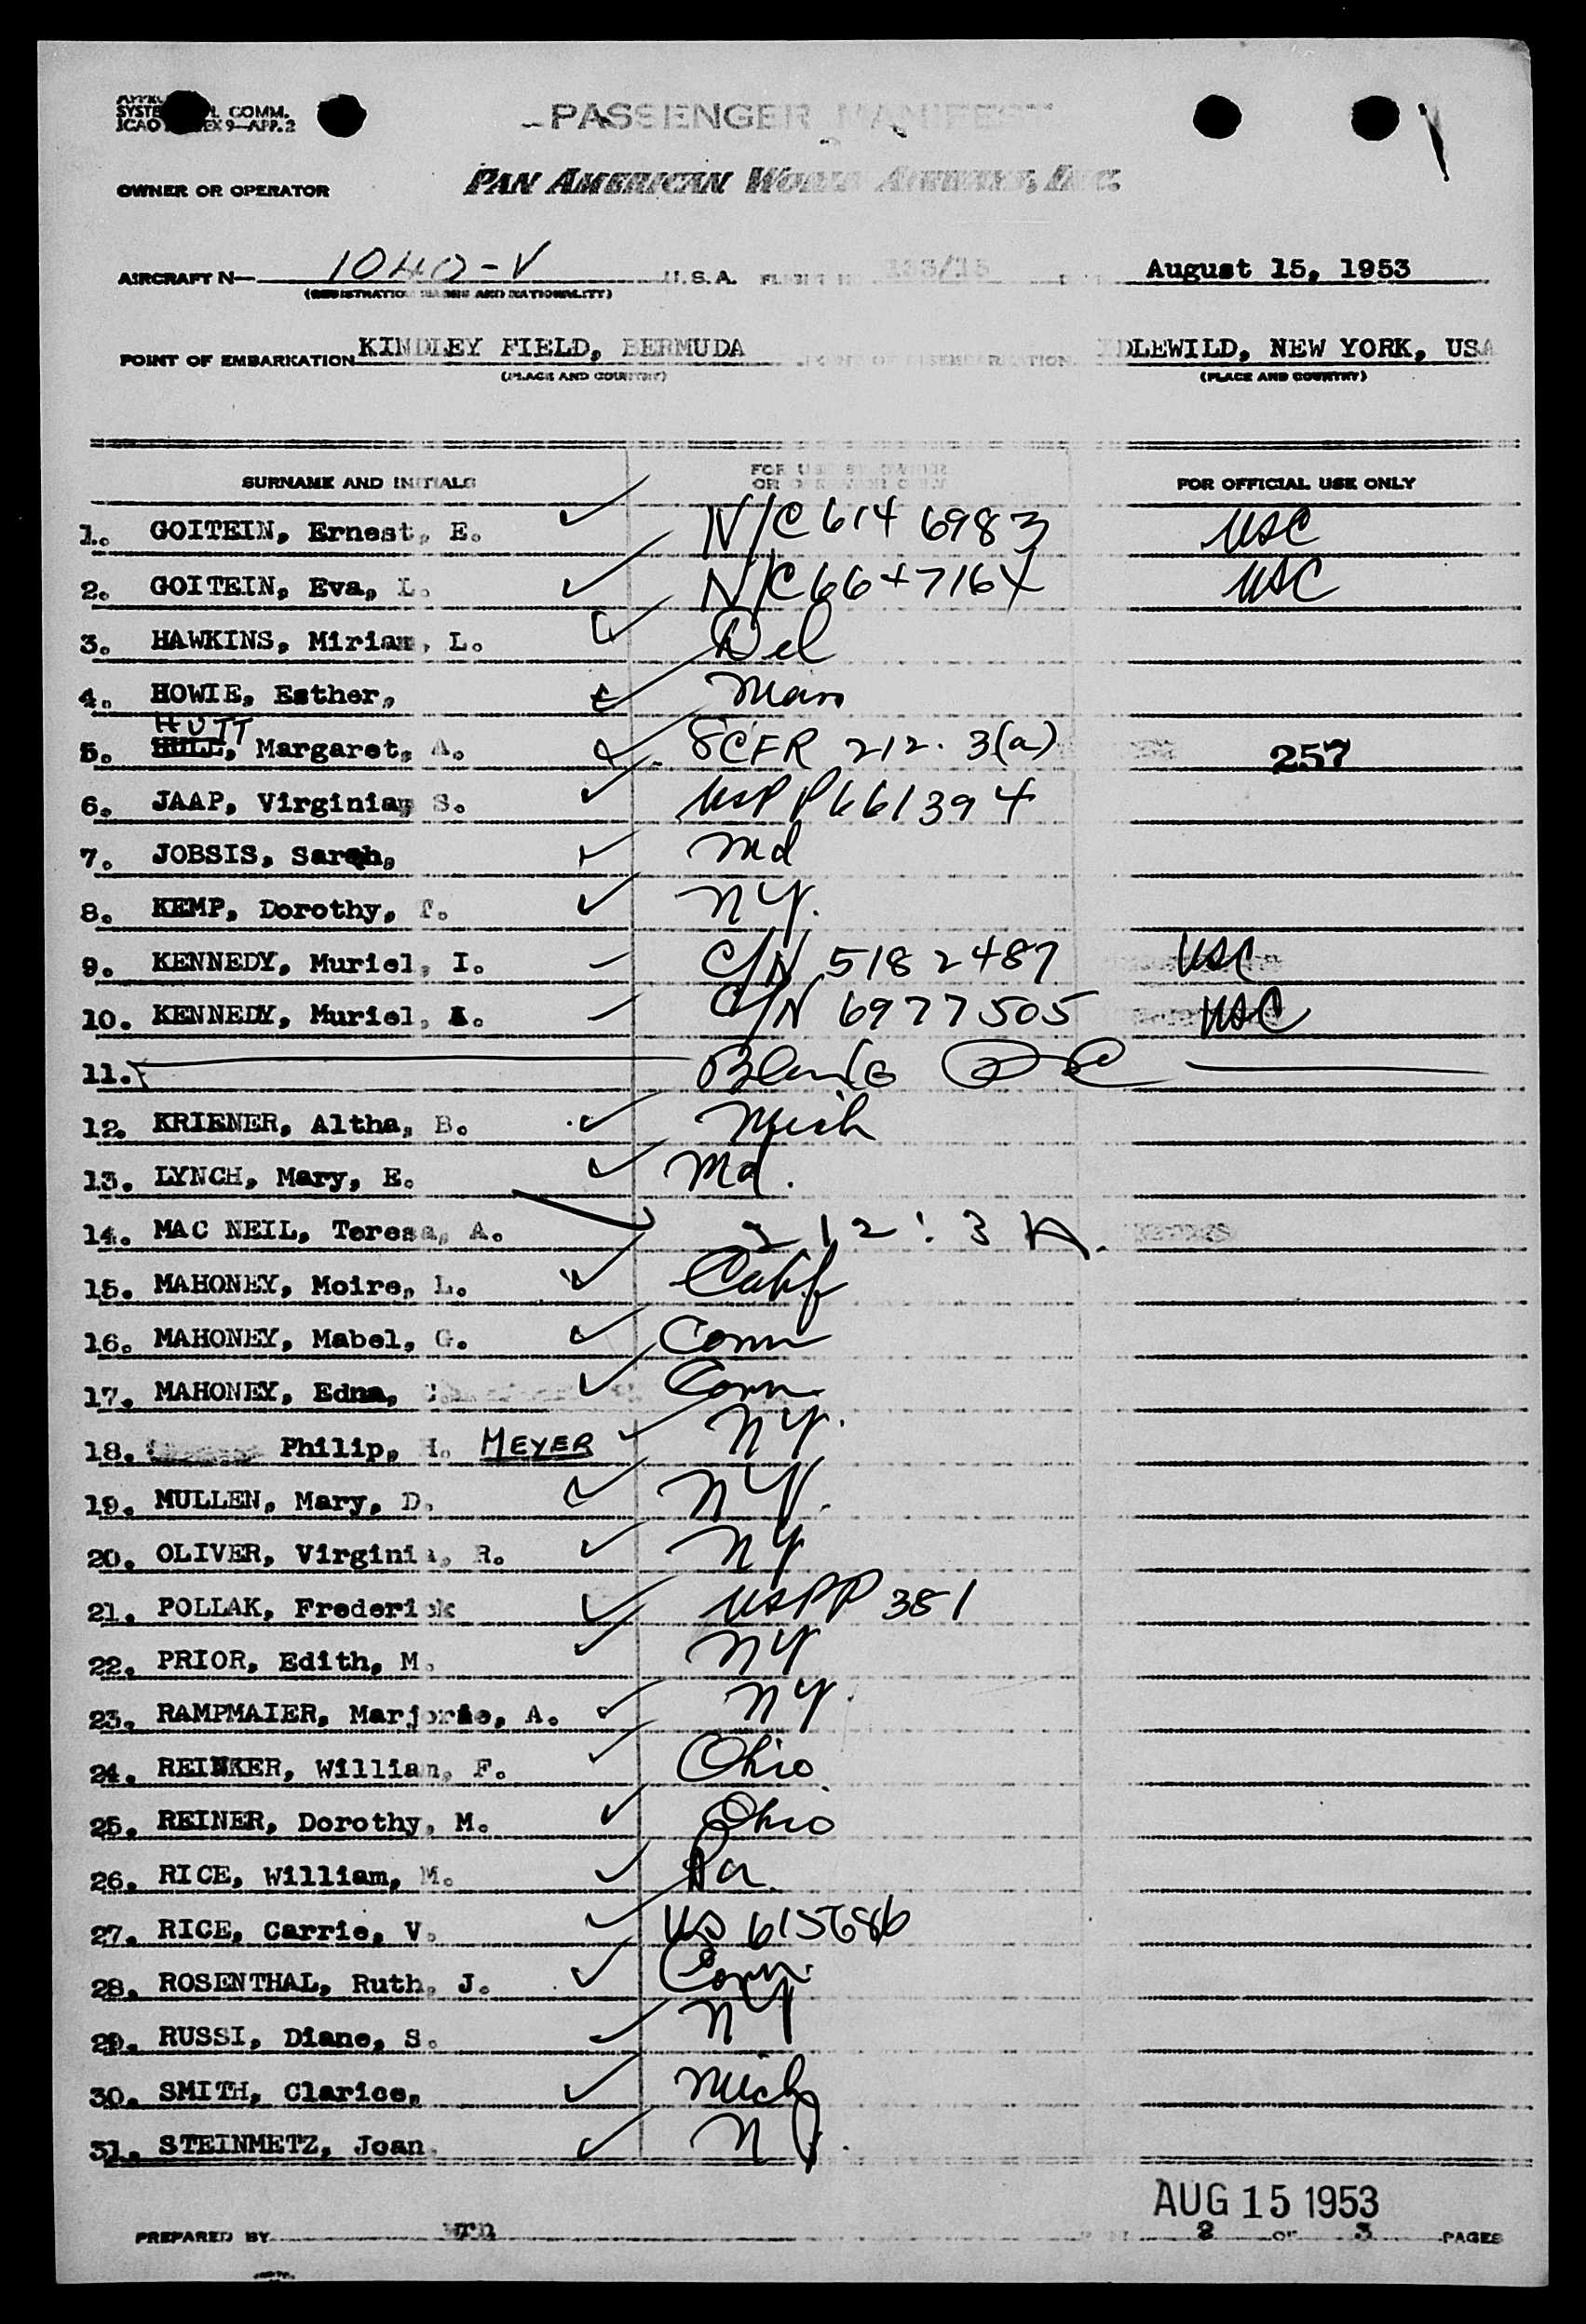 SYSTE L COMM.
ICAO EX 9—APP. 2
PASSENGER MANIFEST
OWNER OR OPERATOR PAN AMERICAN WORLD AIRWAYS, INC.
AIRCRAFT N— 1040-V U.S.A. FLIGHT August 15, 1953
(REGISTRATION MARKS AND NATIONALITY)
POINT OF EMBARKATION KINDLEY FIELD, BERMUDA POINT OF DISEMBARKATION IDLEWILD, NEW YORK, USA
(PLACE AND COUNTRY) (PLACE AND COUNTRY)
SURNAME AND INITIALS FOR USE BY OWNER OR OPERATOR ONLY FOR OFFICIAL USE ONLY
1. GOITEIN, Ernest, E. N/C 614 6983 USC
2. GOITEIN, Eva, L. N/C 6647164 USC
3. HAWKINS, Miriam, L. Del
4. HOWIE, Esther, Mass
HUTT
5. HULL, Margaret, A. 8CFR 212.3(a) 257
6. JAAP, Virginia, S. USPP 661394
7. JOBSIS, Sarah, Md
8. KEMP, Dorothy, T. NY.
9. KENNEDY, Muriel, I. C/N 5182487 USC
10. KENNEDY, Muriel, A. C/N 6977505 USC
11. Blank
12. KRIENER, Altha, B. Mich
13. LYNCH, Mary, E. Md.
14. MAC NEIL, Teresa, A. 212:3 A.
15. MAHONEY, Moire, L. Calif
16. MAHONEY, Mabel, G. Conn
17. MAHONEY, Edna, Conn.
18. Philip, H. MEYER NY.
19. MULLEN, Mary, D. NY.
20. OLIVER, Virginia, R. NY
21. POLLAK, Frederick USPP 381
22. PRIOR, Edith, M. NY
23. RAMPMAIER, Marjorie, A. NY.
24. REINKER, William, F. Ohio
25. REINER, Dorothy, M. Ohio
26. RICE, William, M. Pa.
27. RICE, Carrie, V. US 615686
28. ROSENTHAL, Ruth, J. Conn.
29. RUSSI, Diane, S. NY
30. SMITH, Clarice, Mich
31. STEINMETZ, Joan. NJ.
AUG 15 1953
PREPARED BY wrn 2 OF 3 PAGES